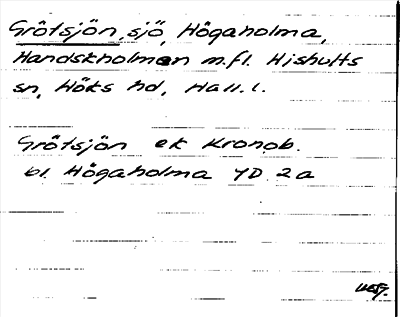 Grötsjön, sjö, Högaholma,
Handskholman m.fl. Hishults
sn, Höks hd, Hall. l.
Grötsjön ek Kronob.
bl. Högaholma YD 2a